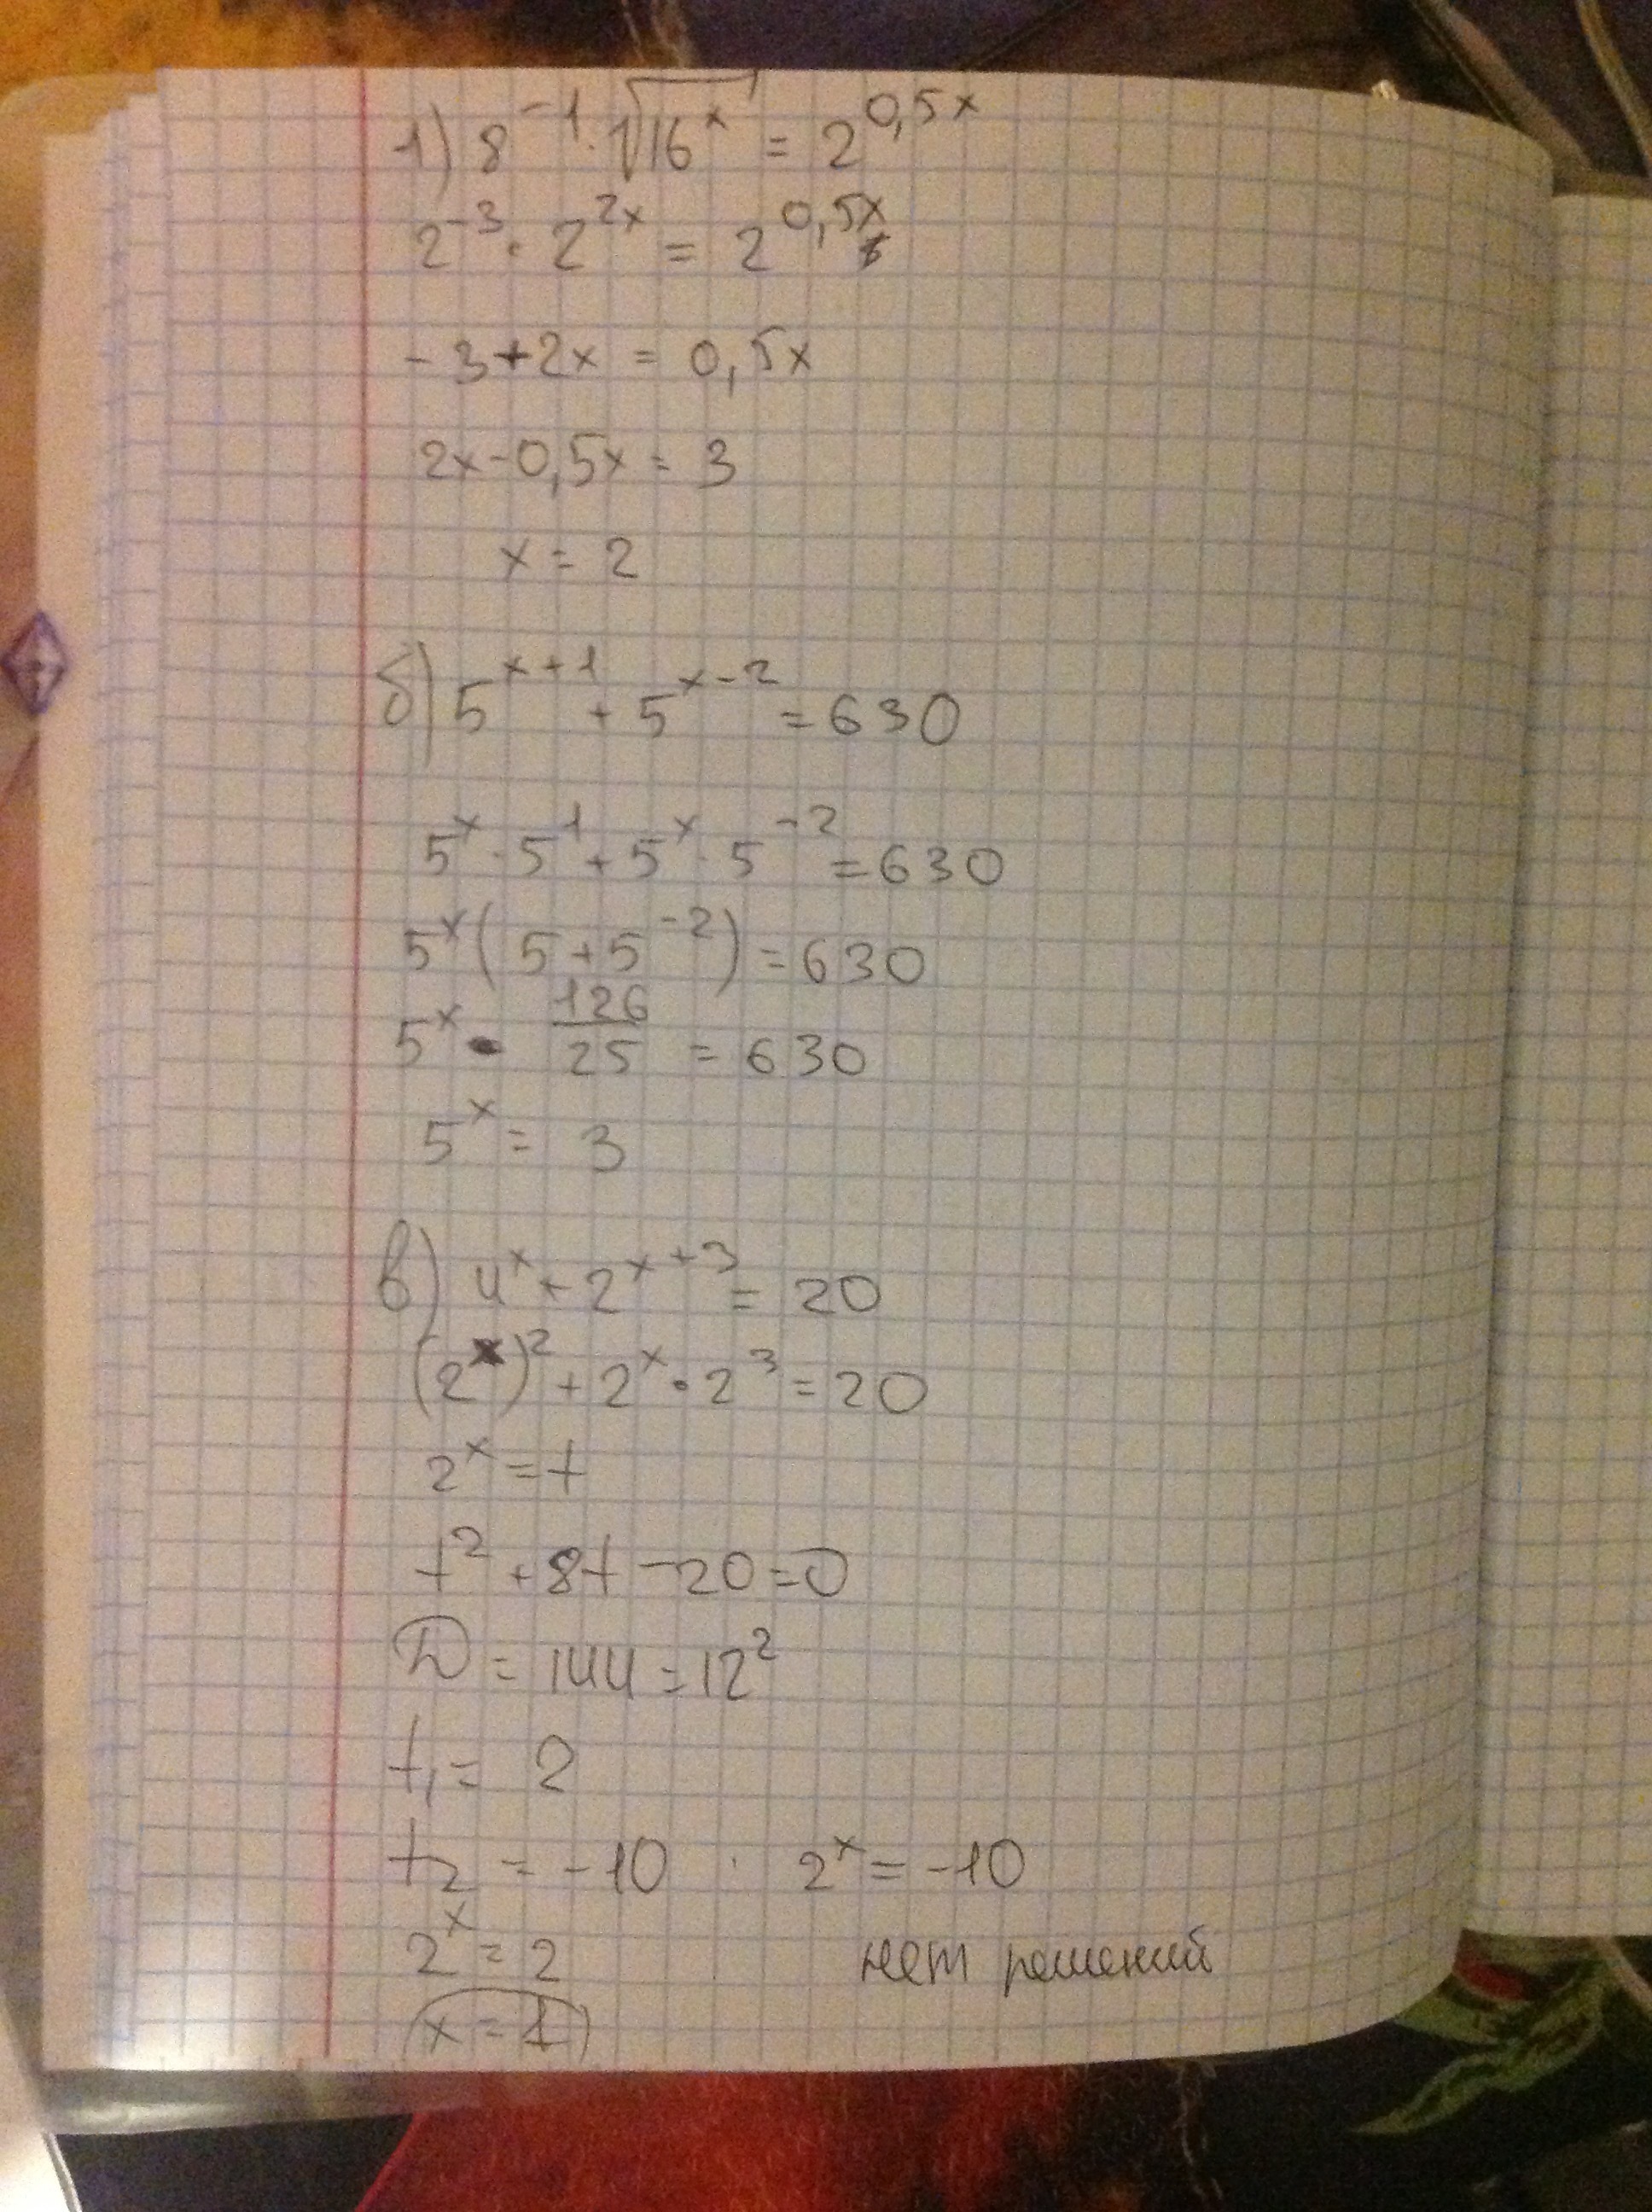 1) 8^{-1} · √16^x = 2^{0,5x}
2^{-3} · 2^{2x} = 2^{0,5x}
-3+2x = 0,5x
2x-0,5x = 3
x = 2
б) 5^{x+1} + 5^{x-2} = 630
5^x · 5^1 + 5^x · 5^{-2} = 630
5^x (5+5^{-2}) = 630
5^x · 126/25 = 630
5^x = 3
в) 4^x + 2^{x+3} = 20
(2^x)^2 + 2^x · 2^3 = 20
2^x = t
t^2 + 8t - 20 = 0
D = 144 = 12^2
t_1 = 2
t_2 = -10 2^x = -10
2^x = 2 нет решений
x = 1